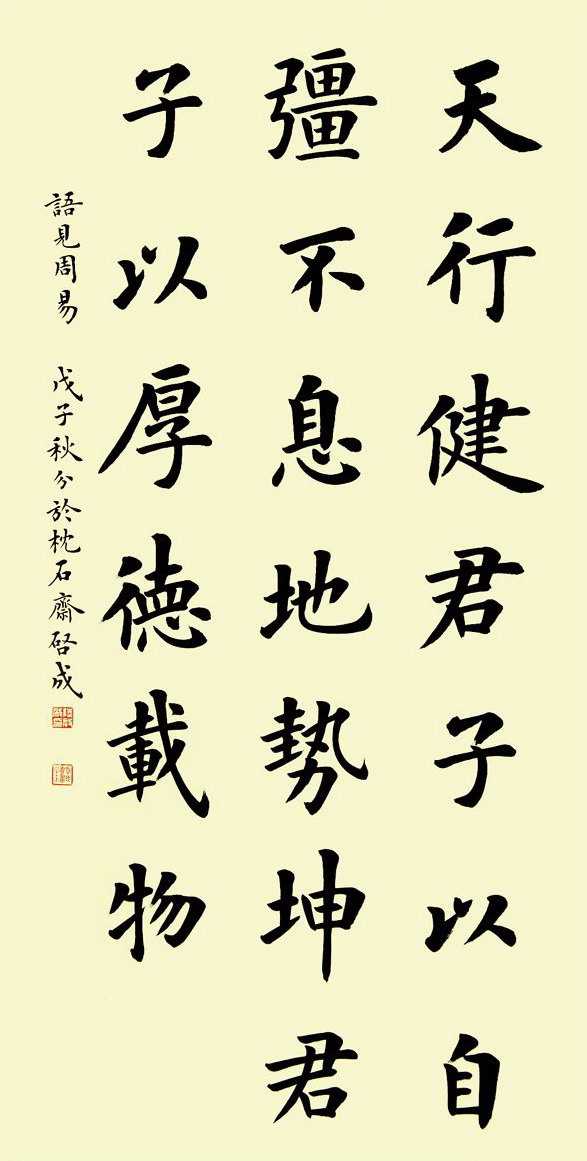 天行健君子以自
彊不息地势坤君
子以厚德載物
語見周易 戊子秋分於枕石齋啓成